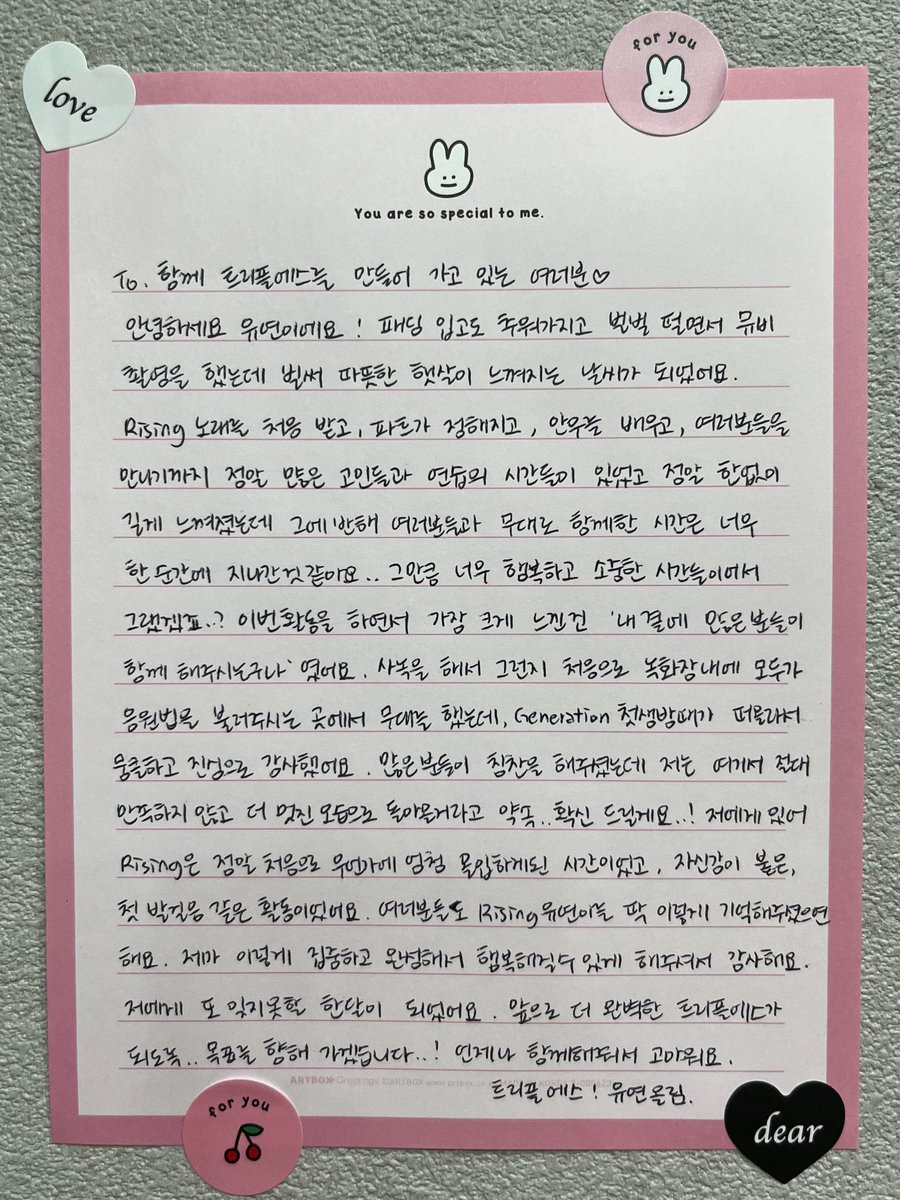 love
for you
You are so special to me.
To. 함께 트리플에스를 만들어 가고 있는 여러분♡
안녕하세요 유연이에요! 패딩 입고도 추워가지고 벌벌 떨면서 뮤비
촬영을 했는데 벌써 따뜻한 햇살이 느껴지는 날씨가 되었어요.
Rising 노래를 처음 받고, 파트가 정해지고, 안무를 배우고, 여러분들을
만나기까지 정말 많은 고민들과 연습의 시간들이 있었고 정말 한없이
길게 느껴졌는데 그에 반해 여러분들과 무대로 함께한 시간은 너무
한순간에 지나간것 같아요.. 그만큼 너무 행복하고 소중한 시간들이어서
그랬겠죠..? 이번활동을 하면서 가장 크게 느낀건 '내 곁에 많은분들이
함께 해주시는구나' 였어요. 사녹을 해서 그런지 처음으로 녹화장내에 모두가
응원법을 불러주시는 곳에서 무대를 했는데, Generation 첫생방때가 떠올라서
뭉클하고 진심으로 감사했어요. 많은분들이 칭찬을 해주셨는데 저는 여기서 절대
안주하지 않고 더 멋진 모습으로 돌아올거라고 약속.. 확신 드릴게요..! 저에게 있어
Rising은 정말 처음으로 무언가에 엄청 몰입하게된 시간이었고, 자신감이 붙은,
첫 발걸음 같은 활동이었어요. 여러분들도 Rising유연이를 딱 이렇게 기억해주셨으면
해요. 제가 이렇게 집중하고 완성해서 행복해질수 있게 해주셔서 감사해요.
저에게 또 잊지못할 한달이 되었어요. 앞으로 더 완벽한 트리플에스가
되도록.. 목표를 향해 가겠습니다..! 언제나 함께해줘서 고마워요.
ARTBOX Greetings ©ARTBOX www.artbox.co
트리플에스! 유연올림.
for you
dear